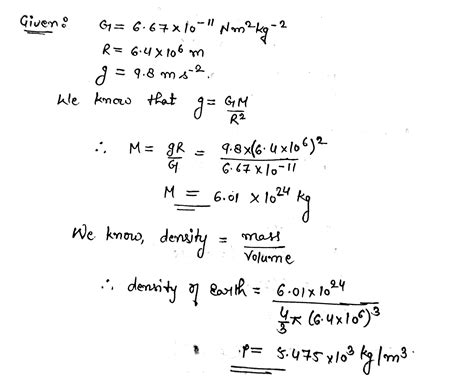 Given: G = 6.67 x 10⁻¹¹ Nm²kg⁻²
R = 6.4 x 10⁶ m
g = 9.8 m s⁻².
We know that g = GM/R²
∴ M = gR/G = 9.8x(6.4x10⁶)²/6.67x10⁻¹¹
M = 6.01 x 10²⁴ kg
We know, density = mass/volume
∴ density of earth = 6.01x10²⁴/4/3 π (6.4x10⁶)³
ρ = 5.475x10³ kg/m³.